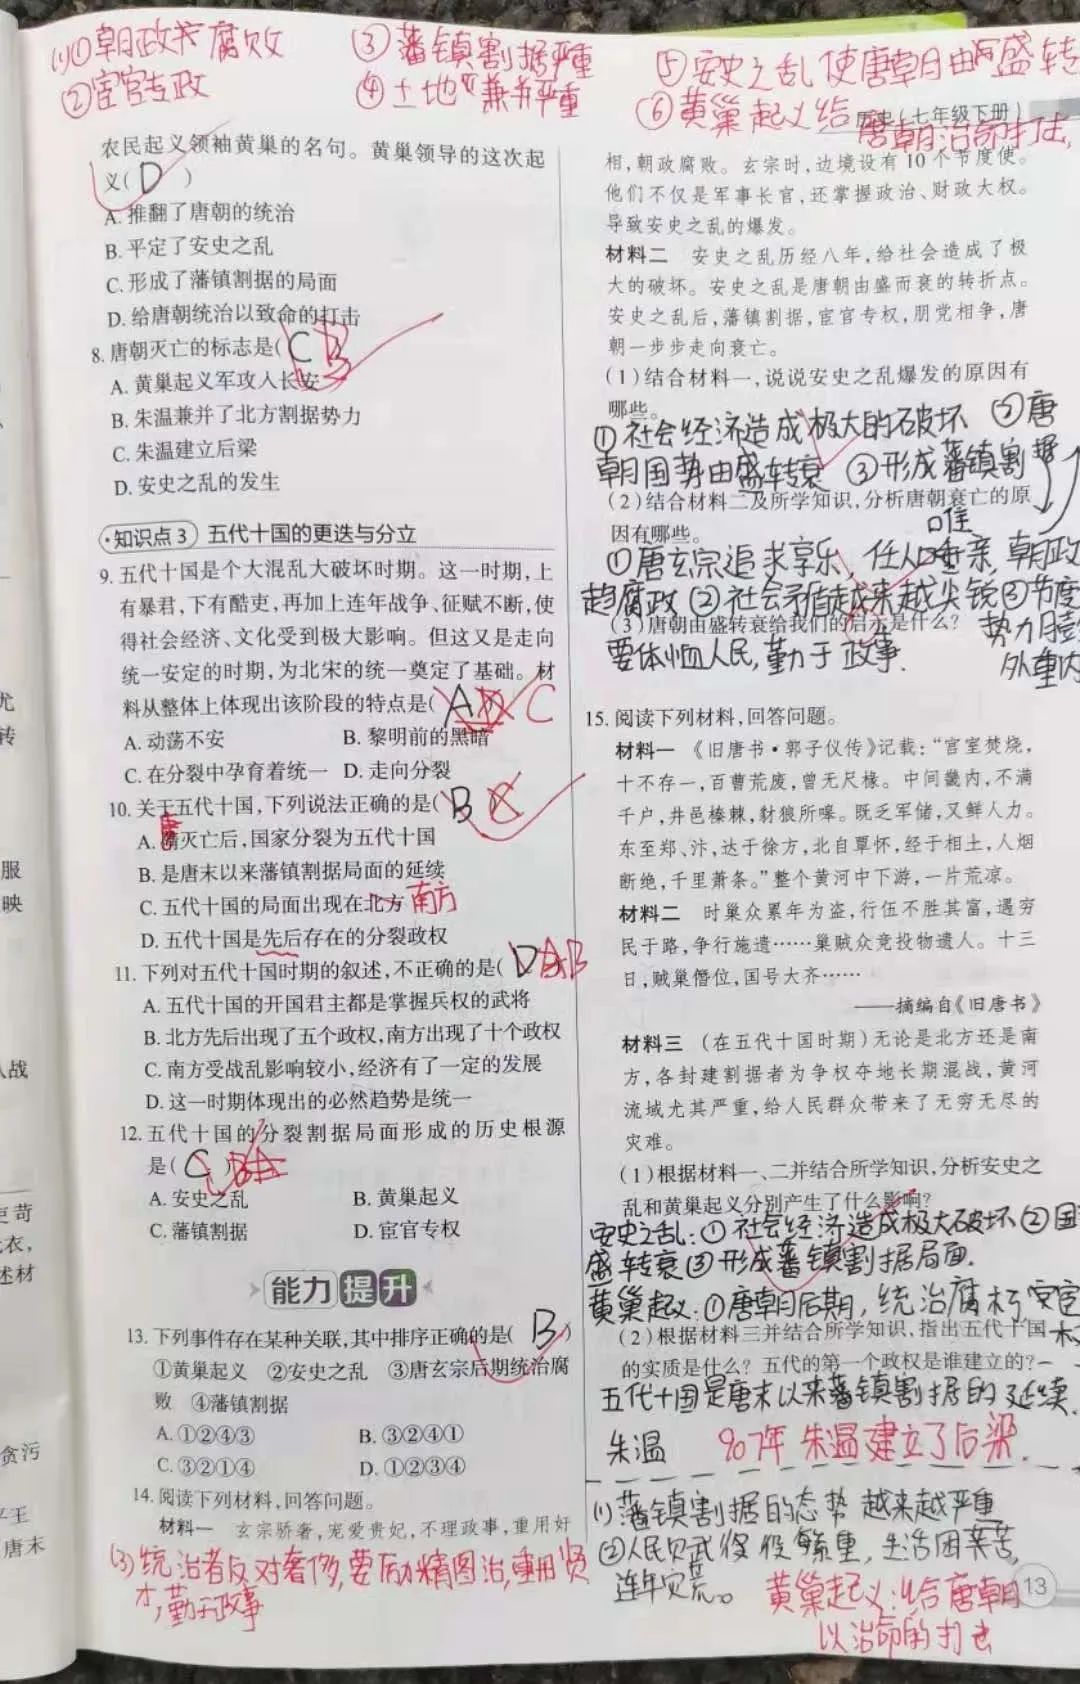 (1)①朝政 腐败
②宦官专政
③藩镇割据严重
④土地兼并严重
⑤安史之乱使唐朝由盛转
⑥黄巢起义给
唐朝治命打击,
历史(七年级下册)
农民起义领袖黄巢的名句。黄巢领导的这次起
义( D )
A. 推翻了唐朝的统治
B. 平定了安史之乱
C. 形成了藩镇割据的局面
D. 给唐朝统治以致命的打击
8. 唐朝灭亡的标志是( C B
A. 黄巢起义军攻入长安
B. 朱温兼并了北方割据势力
C. 朱温建立后梁
D. 安史之乱的发生
知识点3 五代十国的更迭与分立
9. 五代十国是个大混乱大破坏时期。这一时期,上
有暴君,下有酷吏,再加上连年战争、征赋不断,使
得社会经济、文化受到极大影响。但这又是走向
统一安定的时期,为北宋的统一奠定了基础。材
料从整体上体现出该阶段的特点是( A C
A. 动荡不安 B. 黎明前的黑暗
C. 在分裂中孕育着统一 D. 走向分裂
10. 关于五代十国,下列说法正确的是( B C
A. 隋灭亡后,国家分裂为五代十国
唐
B. 是唐末以来藩镇割据局面的延续
C. 五代十国的局面出现在北方 南方
D. 五代十国是先后存在的分裂政权
11. 下列对五代十国时期的叙述,不正确的是( D A B
A. 五代十国的开国君主都是掌握兵权的武将
B. 北方先后出现了五个政权,南方出现了十个政权
C. 南方受战乱影响较小,经济有了一定的发展
D. 这一时期体现出的必然趋势是统一
12. 五代十国的分裂割据局面形成的历史根源
是( C ) B A
A. 安史之乱 B. 黄巢起义
C. 藩镇割据 D. 宦官专权
能力提升
13. 下列事件存在某种关联,其中排序正确的是( B )
①黄巢起义 ②安史之乱 ③唐玄宗后期统治腐
败 ④藩镇割据
A. ①②④③ B. ③②④①
C. ③②①④ D. ①②③④
14. 阅读下列材料,回答问题。
材料一 玄宗骄奢,宠爱贵妃,不理政事,重用奸
(3)统治者反对奢侈,要励精图治,重用贤
才,勤于政事
相,朝政腐败。玄宗时,边境设有10个节度使。
他们不仅是军事长官,还掌握政治、财政大权。
导致安史之乱的爆发。
材料二 安史之乱历经八年,给社会造成了极
大的破坏。安史之乱是唐朝由盛而衰的转折点。
安史之乱后,藩镇割据,宦官专权,朋党相争,唐
朝一步步走向衰亡。
(1)结合材料一,说说安史之乱爆发的原因有
哪些。
①社会经济造成极大的破坏 ②唐
朝国势由盛转衰 ③形成藩镇割据
(2)结合材料二及所学知识,分析唐朝衰亡的原
因有哪些。
唯
①唐玄宗追求享乐,任人 亲,朝政
趋腐政 ②社会矛盾越来越尖锐 ③节度
(3)唐朝由盛转衰给我们的启示是什么?
势力膨
要体恤人民,勤于政事.
外重内
15. 阅读下列材料,回答问题。
材料一 《旧唐书·郭子仪传》记载:“宫室焚烧,
十不存一,百曹荒废,曾无尺椽。中间畿内,不满
千户,井邑榛棘,豺狼所嗥。既乏军储,又鲜人力。
东至郑、汴,达于徐方,北自覃怀,经于相土,人烟
断绝,千里萧条。”整个黄河中下游,一片荒凉。
材料二 时巢众累年为盗,行伍不胜其富,遇穷
民于路,争行施遗……巢贼众竞投物遗人。十三
日,贼巢僭位,国号大齐……
——摘编自《旧唐书》
材料三 (在五代十国时期)无论是北方还是南
方,各封建割据者为争权夺地长期混战,黄河
流域尤其严重,给人民群众带来了无穷无尽的
灾难。
(1)根据材料一、二并结合所学知识,分析安史之
乱和黄巢起义分别产生了什么影响?
安史之乱:①社会经济造成极大破坏②国
盛转衰③形成藩镇割据局面.
黄巢起义:①唐朝后期,统治腐朽 宦官
(2)根据材料三并结合所学知识,指出五代十国
的实质是什么?五代的第一个政权是谁建立的?
五代十国是唐末以来藩镇割据的延续.
朱温 907年 朱温建立了后梁.
(1)藩镇割据的态势越来越严重
②人民贝武役役繁重,生活困苦,
连年灾荒。
黄巢起义:给唐朝
以治命的打击
13
尤
转
服
映
人战
更苛
衣,
述材
贪污
平王
唐末